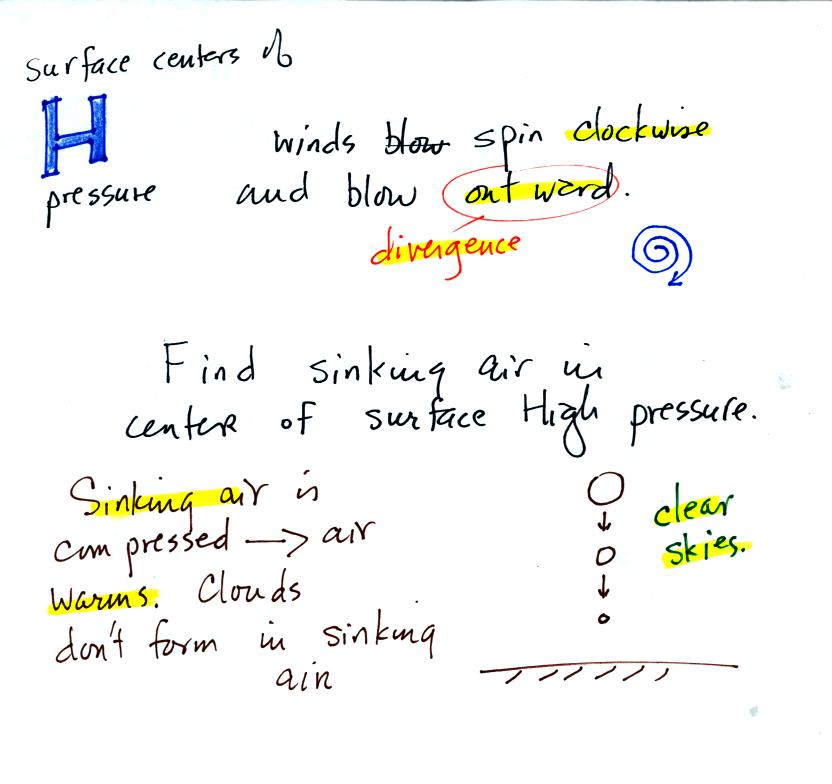 surface centers of
H
pressure
winds blow spin clockwise
and blow outward.
divergence
Find sinking air in
center of surface High pressure.
Sinking air is
compressed → air
warms. Clouds
don't form in sinking
air
clear
skies.